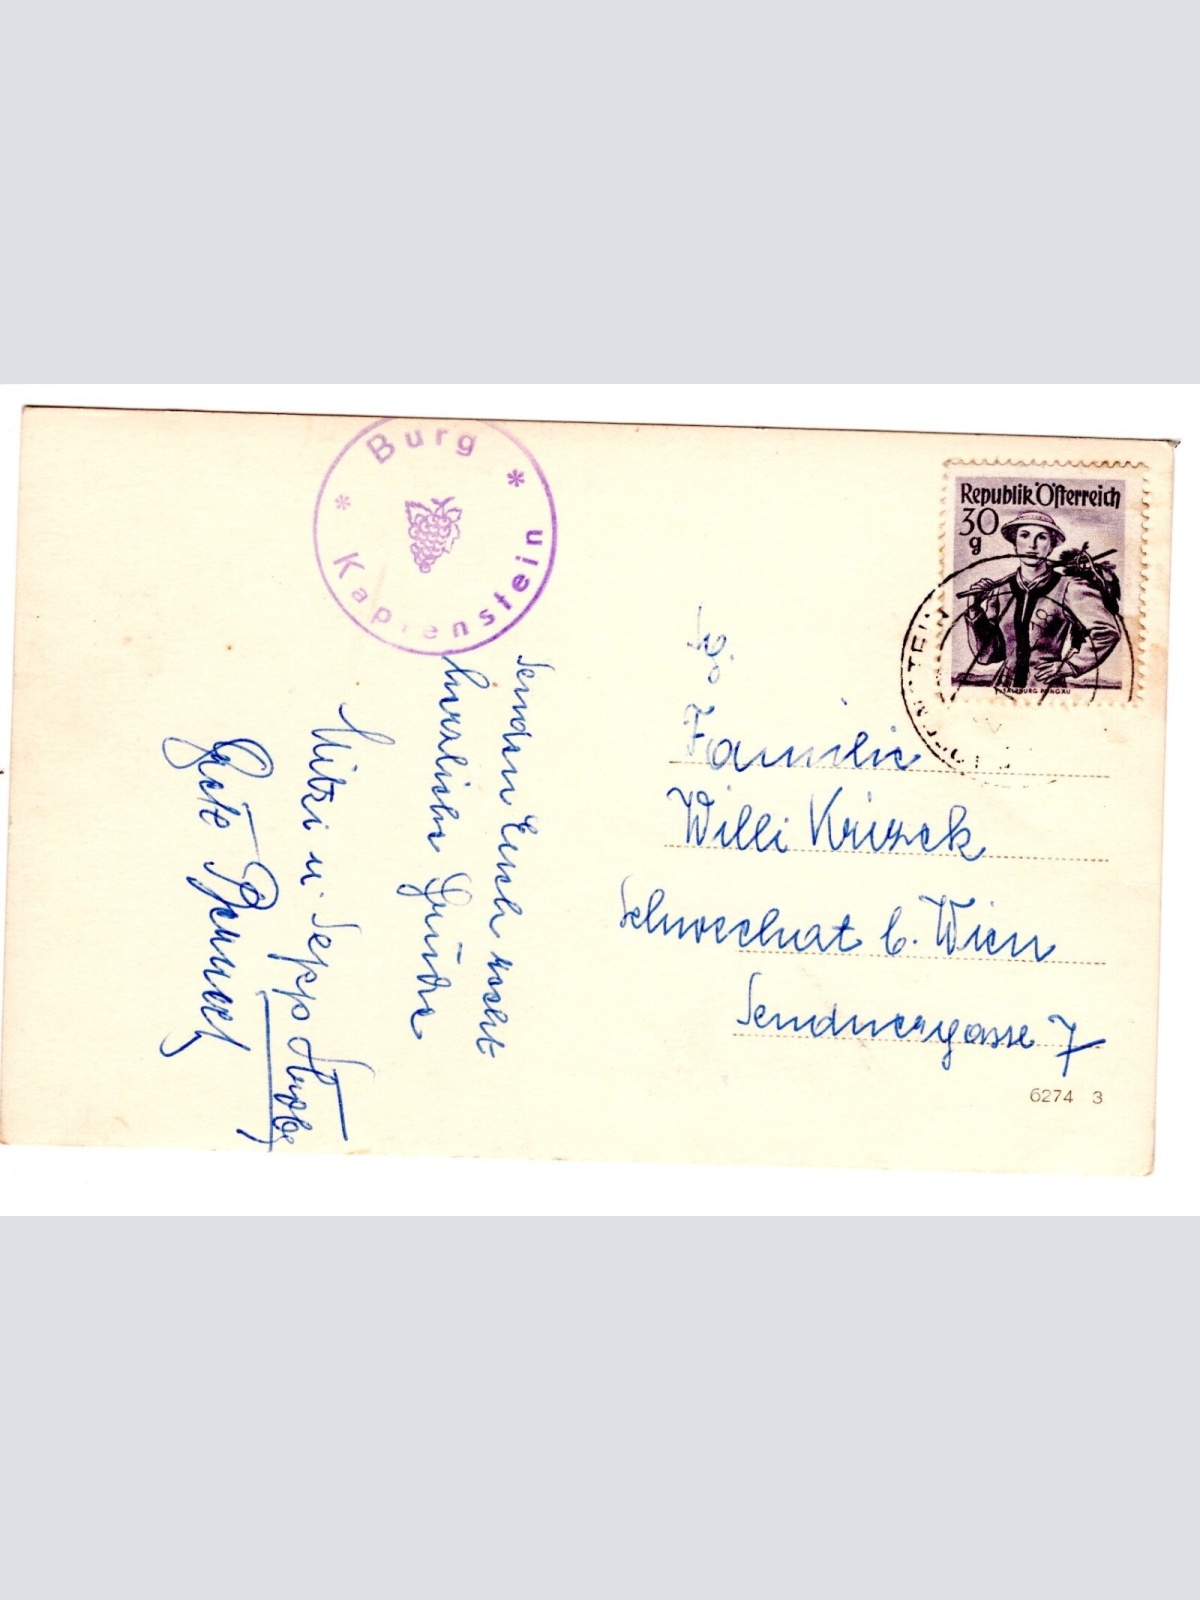 Burg
Kapfenstein
Republik Österreich
30
g
SALZBURG PONGAU
Senden Euch recht
herzliche Grüße
Mitzi u. Sepp
Familie
Willi Krizek
Schwechat b. Wien
Sendnergasse 7
6274 3